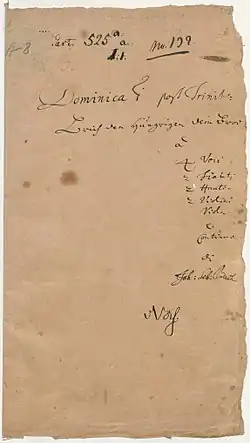 Part. 525ª
No. 139
Dominica 1 post Trinit:
Brich dem Hungrigen dein Brod
à
4 Voci
2 Flauti
2 Hautb
2 Violini
Viola
e
Continuo
di
Joh: Seb: Bach